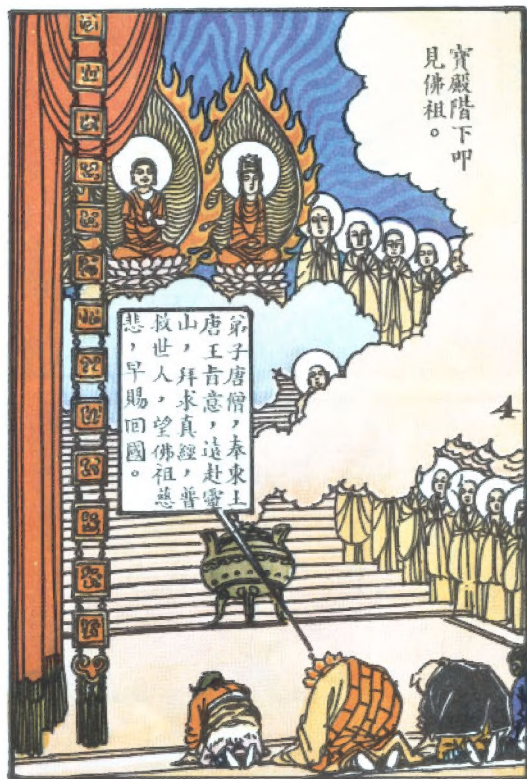 寶殿階下叩
見佛祖。
弟子唐僧，奉東土
唐王旨意，遠赴靈
山，拜求真經，普
救世人，望佛祖慈
悲，早賜回國。
4